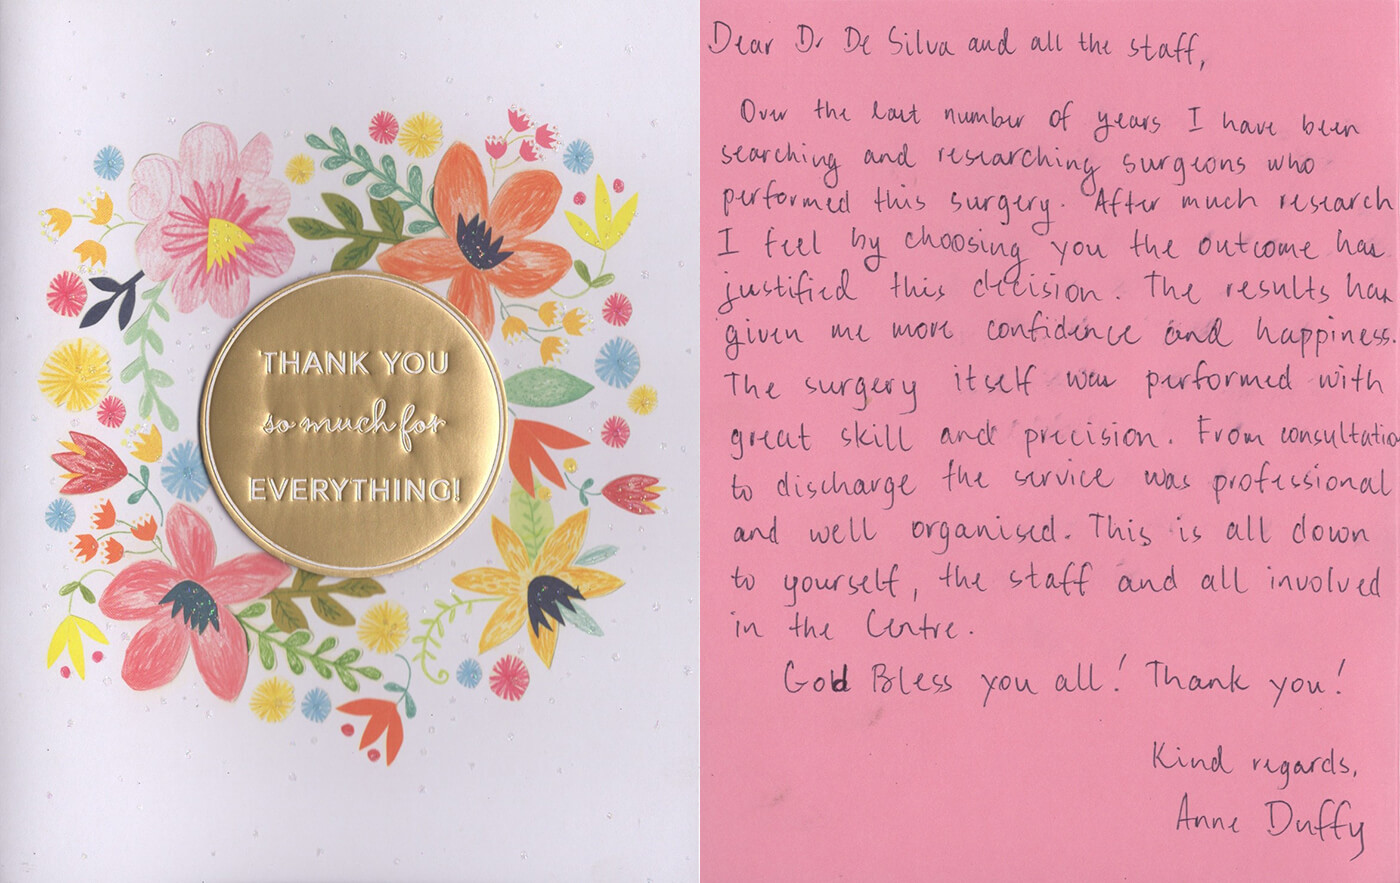 THANK YOU
so much for
EVERYTHING!
Dear Dr De Silva and all the staff,
Over the last number of years I have been
searching and researching surgeons who
performed this surgery. After much research
I feel by choosing you the outcome has
justified this decision. The results has
given me more confidence and happiness.
The surgery itself was performed with
great skill and precision. From consultatio
to discharge the service was professional
and well organised. This is all down
to yourself, the staff and all involved
in the Centre.
God Bless you all! Thank you!
Kind regards,
Anne Duffy